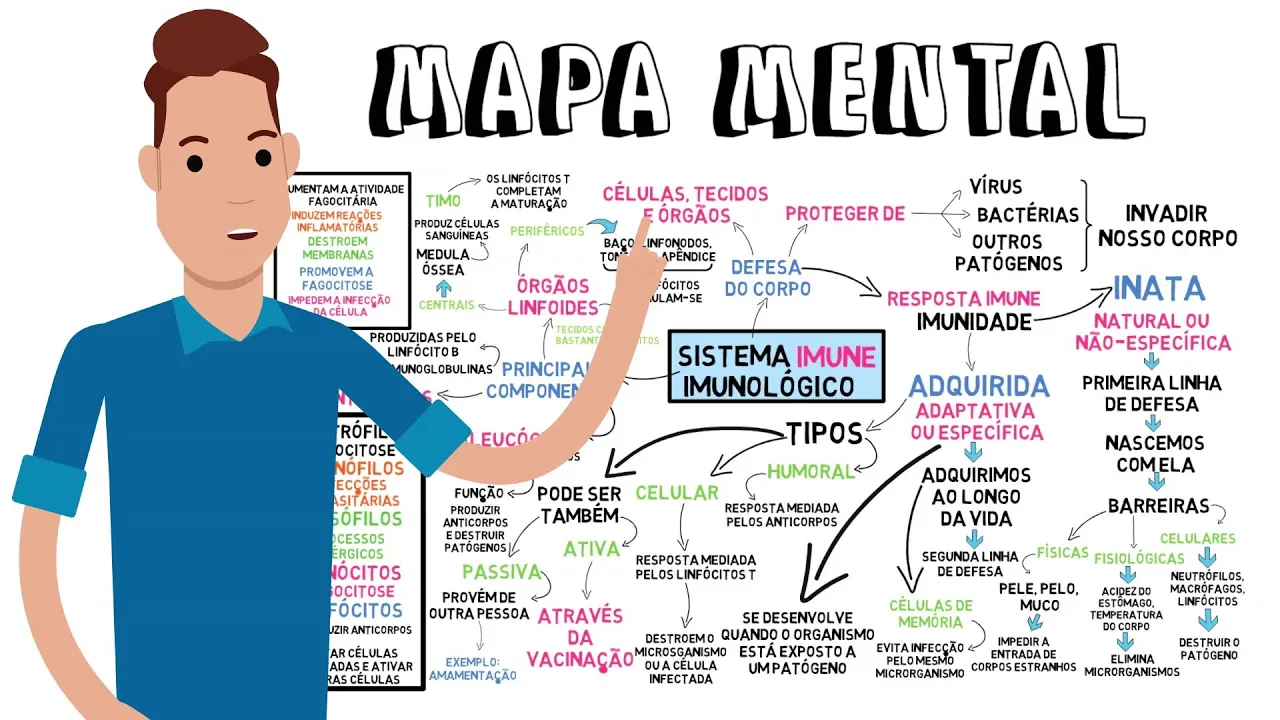 MAPA MENTAL
UMENTAM A ATIVIDADE
FAGOCITÁRIA
INDUZEM REAÇÕES
INFLAMATÓRIAS
DESTROEM
MEMBRANAS
PROMOVEM A
FAGOCITOSE
IMPEDEM A INFECÇÃO
DA CÉLULA
TIMO
OS LINFÓCITOS T
COMPLETAM
A MATURAÇÃO
PRODUZ CÉLULAS
SANGUÍNEAS
MEDULA
ÓSSEA
CENTRAIS
PERIFÉRICOS
ÓRGÃOS
LINFOIDES
CÉLULAS, TECIDOS
E ÓRGÃOS
BAÇO, LINFONODOS,
APÊNDICE
TECIDOS
BASTANT
PROTEGER DE
VÍRUS
BACTÉRIAS
OUTROS
PATÓGENOS
INVADIR
NOSSO CORPO
DEFESA
DO CORPO
RESPOSTA IMUNE
IMUNIDADE
INATA
NATURAL OU
NÃO-ESPECÍFICA
PRIMEIRA LINHA
DE DEFESA
NASCEMOS
COM ELA
BARREIRAS
FÍSICAS
PELE, PELO,
MUCO
IMPEDIR A
ENTRADA DE
CORPOS ESTRANHOS
FISIOLÓGICAS
ACIDEZ DO
ESTÔMAGO,
TEMPERATURA
DO CORPO
ELIMINA
MICRORGANISMOS
CELULARES
NEUTRÓFILOS,
MACRÓFAGOS,
LINFÓCITOS
DESTRUIR O
PATÓGENO
SISTEMA IMUNE
IMUNOLÓGICO
PRODUZIDAS PELO
LINFÓCITO B
MUNOGLOBULINAS
PRINCIPAI
COMPONEN
LEUCÓC
ADQUIRIDA
ADAPTATIVA
OU ESPECÍFICA
ADQUIRIMOS
AO LONGO
DA VIDA
SEGUNDA LINHA
DE DEFESA
TIPOS
HUMORAL
RESPOSTA MEDIADA
PELOS ANTICORPOS
CELULAR
RESPOSTA MEDIADA
PELOS LINFÓCITOS T
DESTROEM O
MICROSGANISMO
OU A CÉLULA
INFECTADA
PODE SER
TAMBÉM
ATIVA
ATRAVÉS
DA
VACINAÇÃO
PASSIVA
PROVÉM DE
OUTRA PESSOA
EXEMPLO:
AMAMENTAÇÃO
FUNÇÃO
PRODUZIR
ANTICORPOS
E DESTRUIR
PATÓGENOS
SE DESENVOLVE
QUANDO O ORGANISMO
ESTÁ EXPOSTO A
UM PATÓGENO
CÉLULAS DE
MEMÓRIA
EVITA INFECÇÃO
PELO MESMO
MICRORGANISMO
TRÓFIL
OCITOSE
NÓFILOS
ECÇÕES
ASITÁRIAS
SÓFILOS
OCESSOS
ÉRGICOS
NÓCITOS
GOCITOSE
FÓCITOS
UZIR ANTICORPOS
AR CÉLULAS
ADAS E ATIVAR
RAS CÉLULAS